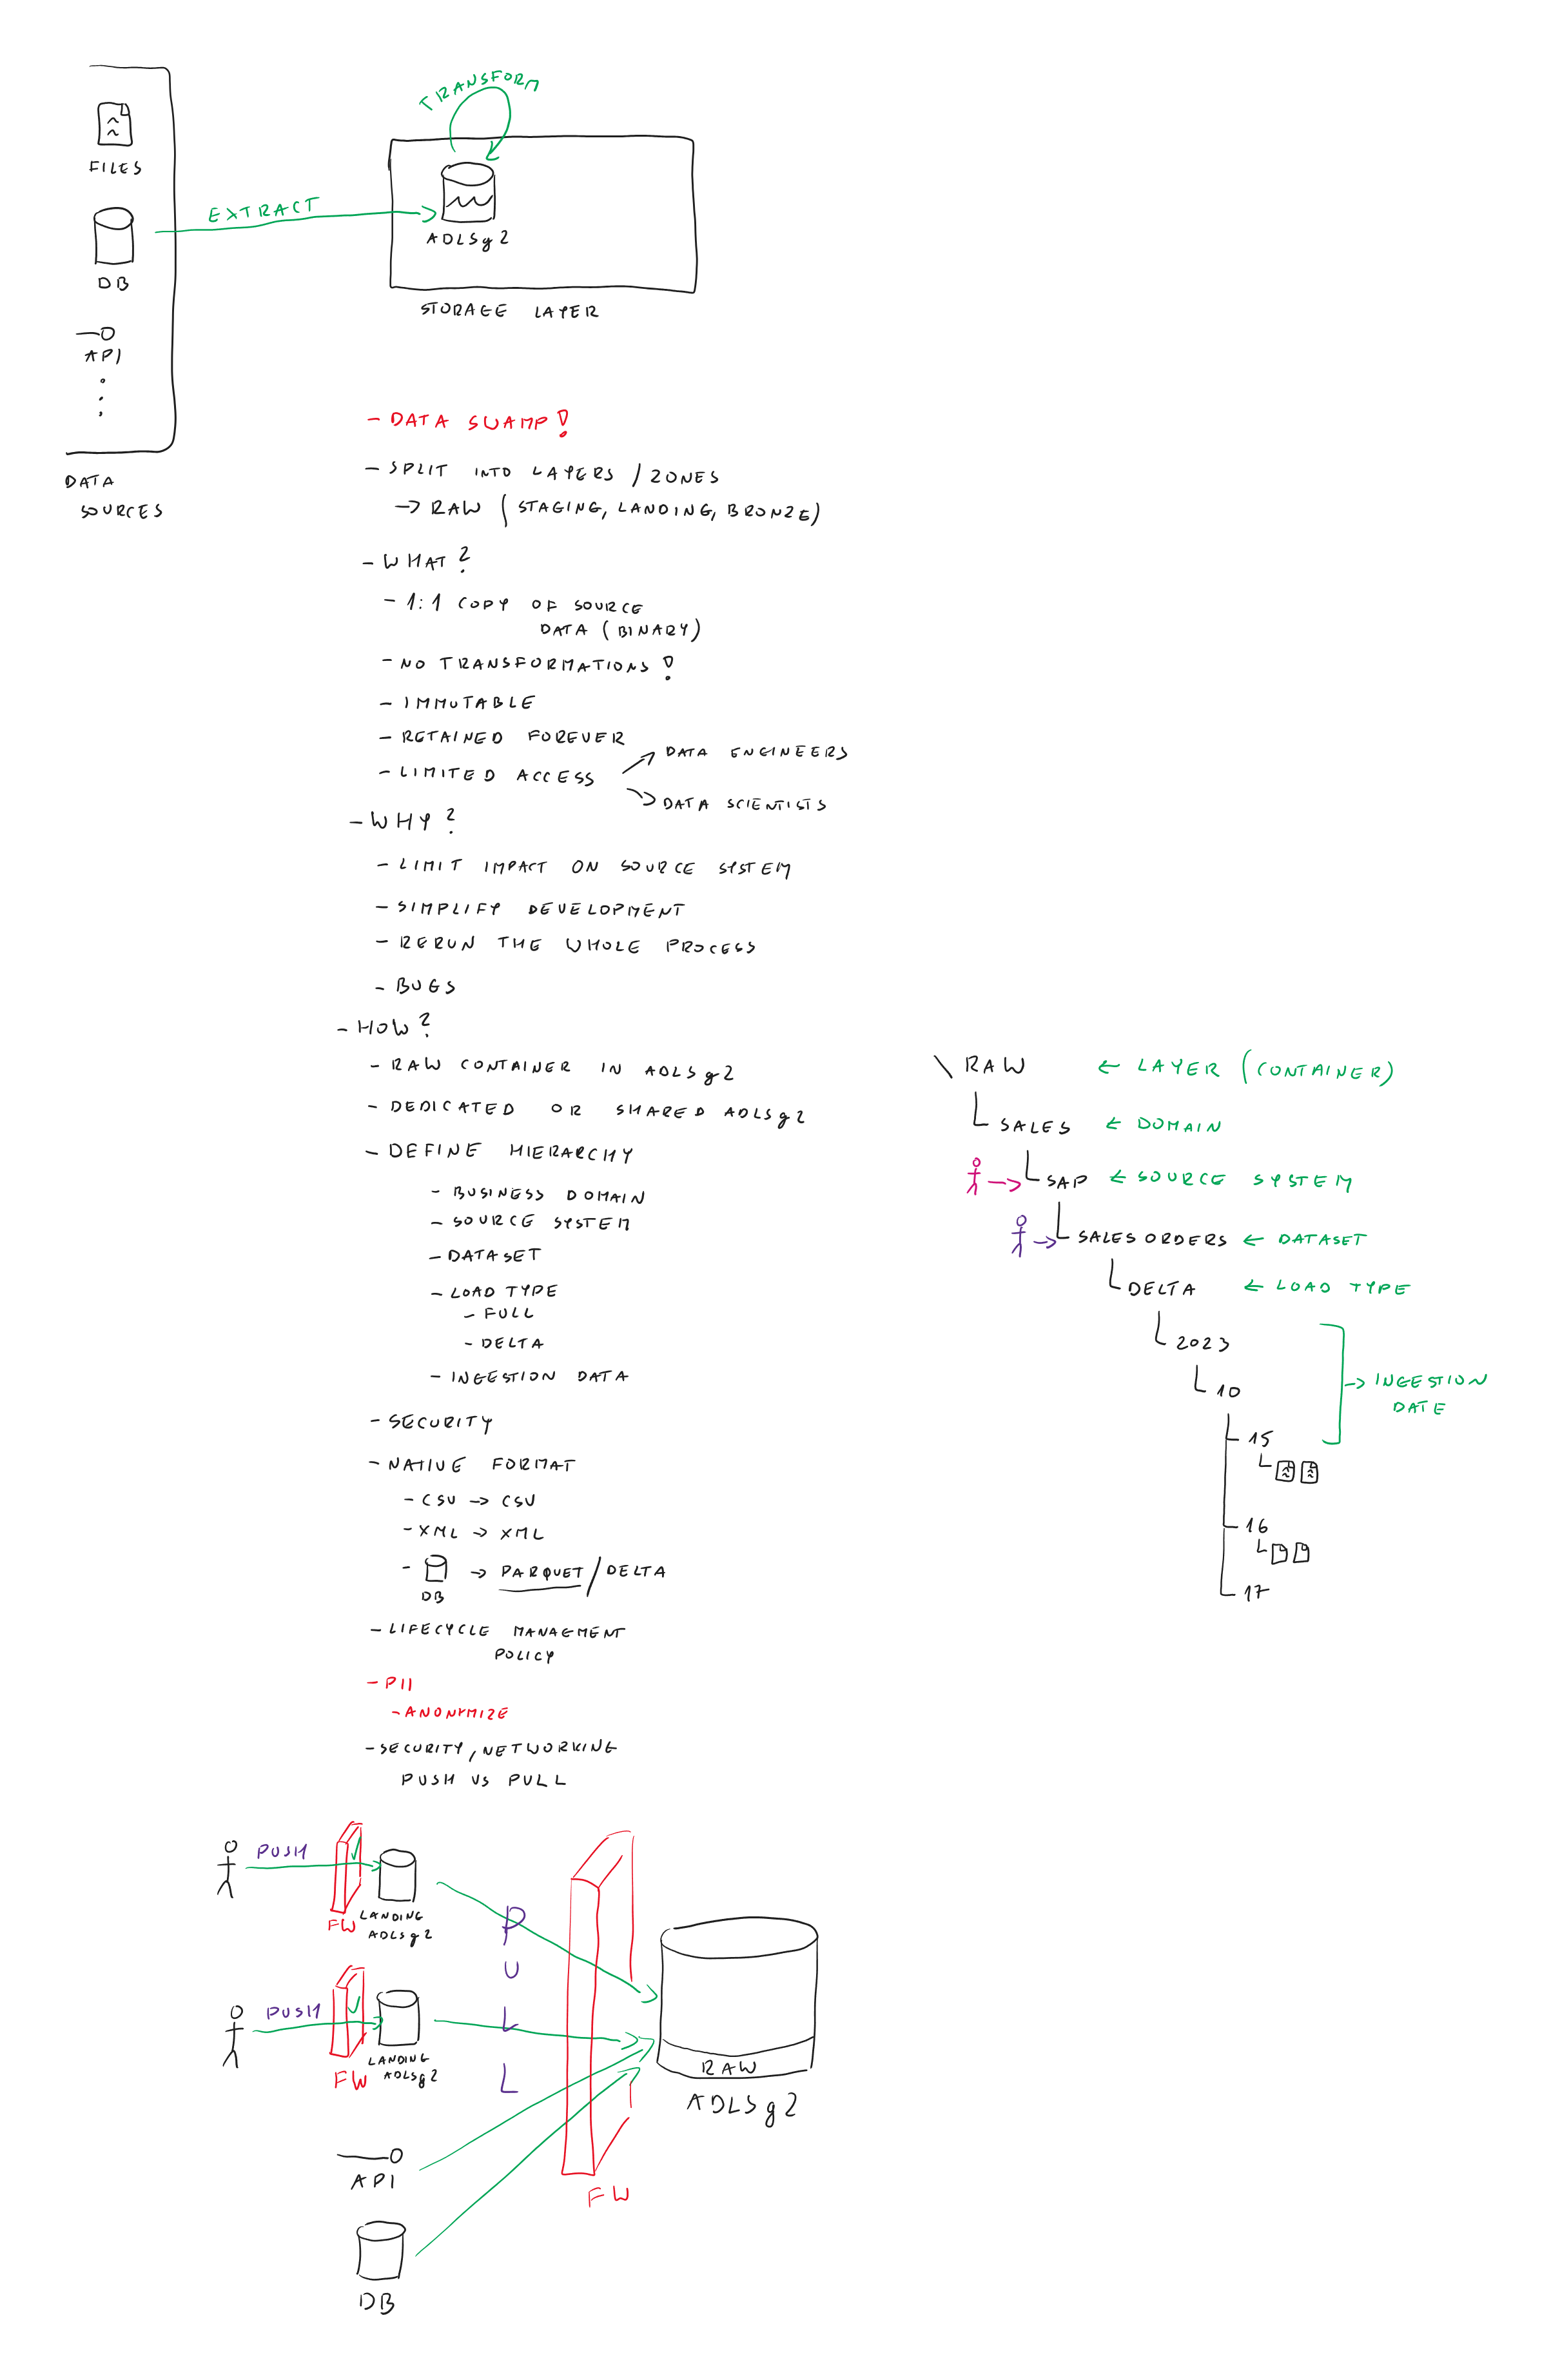 TRANSFORM
FILES
EXTRACT
ADLSg2
DB
STORAGE LAYER
API
DATA
SOURCES
- DATA SWAMP!
- SPLIT INTO LAYERS / ZONES
→ RAW (STAGING, LANDING, BRONZE)
- WHAT?
- 1:1 COPY OF SOURCE
DATA (BINARY)
- NO TRANSFORMATIONS!
- IMMUTABLE
- RETAINED FOREVER
- LIMITED ACCESS
DATA ENGINEERS
DATA SCIENTISTS
- WHY?
- LIMIT IMPACT ON SOURCE SYSTEM
- SIMPLIFY DEVELOPMENT
- RERUN THE WHOLE PROCESS
- BUGS
- HOW?
- RAW CONTAINER IN ADLSg2
- DEDICATED OR SHARED ADLSg2
- DEFINE HIERARCHY
- BUSINESS DOMAIN
- SOURCE SYSTEM
- DATASET
- LOAD TYPE
- FULL
- DELTA
- INGESTION DATA
- SECURITY
- NATIVE FORMAT
- CSV → CSV
- XML → XML
- DB → PARQUET / DELTA
- LIFECYCLE MANAGMENT
POLICY
- PII
- ANONYMIZE
- SECURITY, NETWORKING
PUSH VS PULL
\ RAW ← LAYER (CONTAINER)
SALES ← DOMAIN
SAP ← SOURCE SYSTEM
SALES ORDERS ← DATASET
DELTA ← LOAD TYPE
2023
10
→ INGESTION
DATE
15
16
17
PUSH
FW
LANDING
ADLSg2
PUSH
FW
LANDING
ADLSg2
PULL
API
DB
FW
RAW
ADLSg2